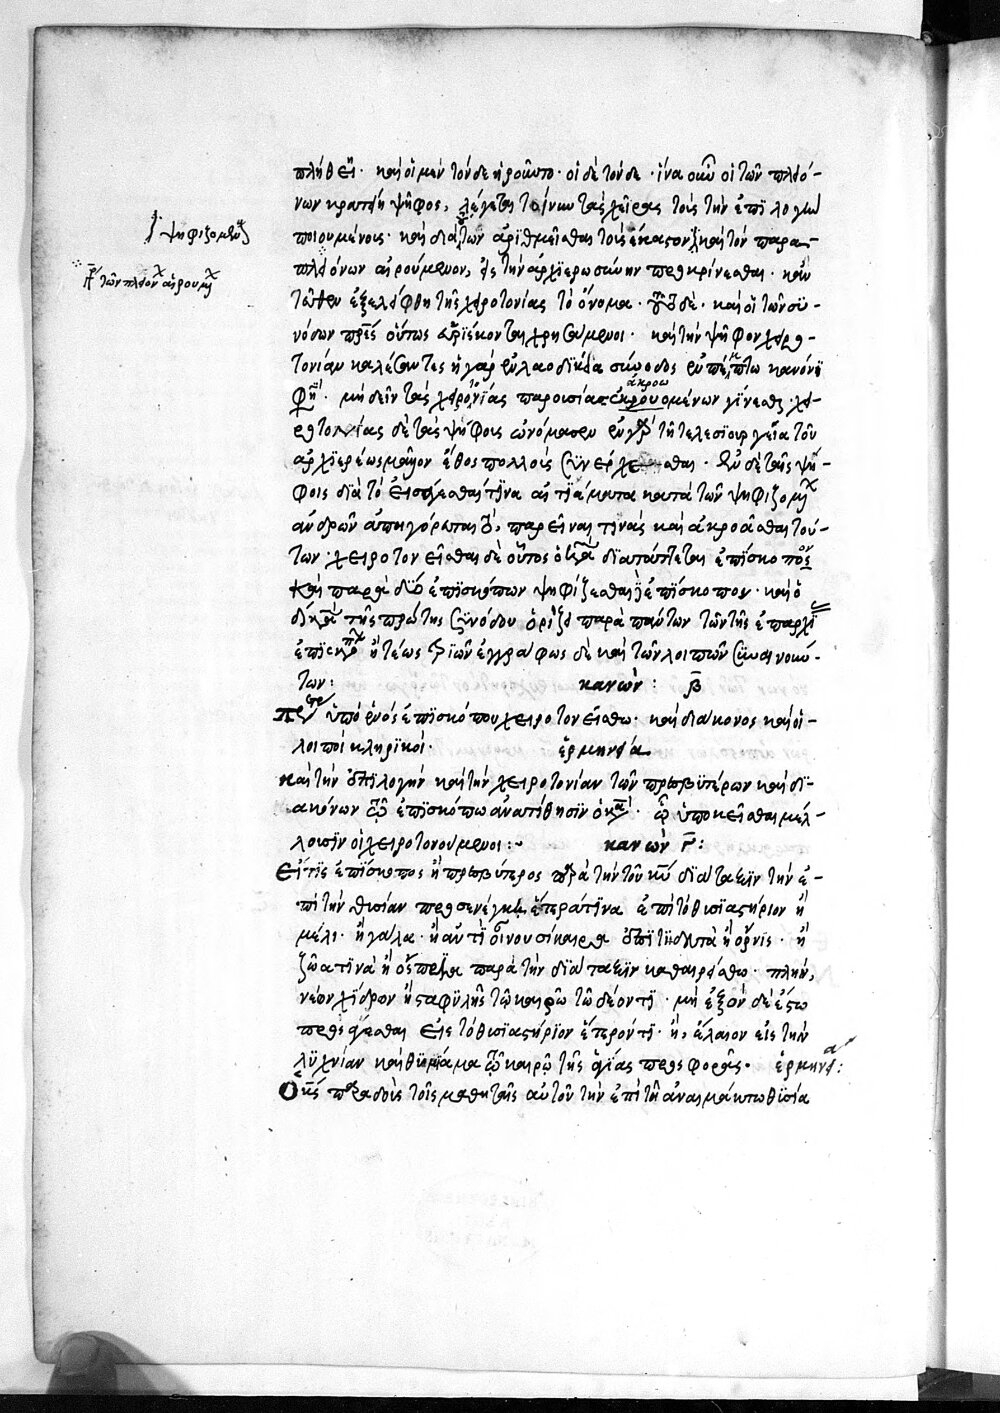 πλήθει· καὶ οἱ μὲν τόνδε ἡροῦντο· οἱ δὲ τόνδε· ἵνα οὖν οἱ τῶν πλειό-
νων κρατήση ψῆφος, λέγεται τείνειν τὰς χεῖρας τοὺς τὴν ἐπιλογὴν
ποιουμένους· καὶ διὰ τῶν ἀριθμεῖσθαι τοὺς ἕκαστον καὶ τὸν παρα-
πλειόνων αἱρούμενον, εἰς τὴν ἀρχιερωσύνην προκρίνεσθαι· κἂν
τεῦθεν ἐξελείφθη τῆς χειροτονίας τὸ ὄνομα· καὶ οἱ τῶν συ-
νόδων πρες οὕτως εὑρίσκονται χρησάμενοι· καὶ τὴν ψῆφον χειρο-
τονίαν καλέσαντες ἡ γὰρ ἐν λαοδικεία σύνοδος ἐν πέμπτω κανόνι
φησί· μὴ δεῖν τὰς χειροτονίας παρουσία ἀκροωμένων γίνεσθαι· χει-
ροτονίας δὲ τὰς ψήφους ὠνόμασεν ἐν γὰρ τῆ τελεσιουργεία τοῦ
ἀρχιερέως μᾶλλον ἔθος πολλοὺς συνέρχεσθαι· ἐν δὲ ταῖς ψή-
φοις διὰ τὸ εἰσάγεσθαι τινα αἰτιάματα κατὰ τῶν ψηφιζομένων
ἀνδρῶν ἀπηγόρευται, παρεῖναι τινὰς καὶ ἀκροᾶσθαι τού-
των· χειροτονεῖσθαι δὲ οὗτος ὁ κανὼν διατάττεται ἐπίσκοπος
καὶ παρὰ δύο ἐπισκόπων ψηφίζεσθαι ἐπίσκοπον· καὶ ὁ
δ κανὼν τῆς πρώτης συνόδου ὁρίζει παρὰ πάντων τῶν τῆς ἐπαρχίας
ἐπισκόπων ἢ τέως τριῶν ἐγγράφως δὲ καὶ τῶν λοιπῶν συναινούν-
των: κανὼν: β
πρεσβύτερος ὑπὸ ἑνὸς ἐπισκόπου χειροτονείσθω· καὶ διάκονος καὶ οἱ
λοιποὶ κληρικοί· ἑρμηνεία
καὶ τὴν ἐπιλογὴν καὶ τὴν χειροτονίαν τῶν πρεσβυτέρων καὶ δι-
ακόνων τῶ ἐπισκόπω ἀνατίθησιν ὁ κανών· ὧ ὑποκεῖσθαι μέλ-
λουσιν οἱ χειροτονούμενοι:~ κανὼν Γ:
Εἴ τις ἐπίσκοπος ἢ πρεσβύτερος παρὰ τὴν τοῦ κυ διάταξιν τὴν ἐ-
πὶ τὴν θυσίαν προσενέγκη ἕτερά τινα ἐπὶ τὸ θυσιαστήριον ἢ
μέλι· ἢ γάλα· ἢ ἀντὶ οἴνου σίκερα ἐπιτηδευτὰ ἢ ὄρνις· ἢ
ζῶα τινὰ ἢ ὄσπρια παρὰ τὴν διάταξιν καθαιρείσθω· πλὴν,
νέον χίδρον ἢ σταφυλῆς τῶ καιρῶ τῶ δέοντι· μὴ ἐξὸν δὲ ἔστω
προσάγεσθαι εἰς τὸ θυσιαστήριον ἕτερόν τι· ἢ, ἔλαιον εἰς τὴν
λυχνίαν καὶ θυμίαμα τῶ καιρῶ τῆς ἁγίας προσφορᾶς· ἑρμηνεία:
Ὁ κς παραδοὺς τοῖς μαθηταῖς αὐτοῦ τὴν ἐπὶ τῆ ἀναιμάκτω θυσία
ψηφιζομένους
τῶν πλειόνων αἱρουμένων